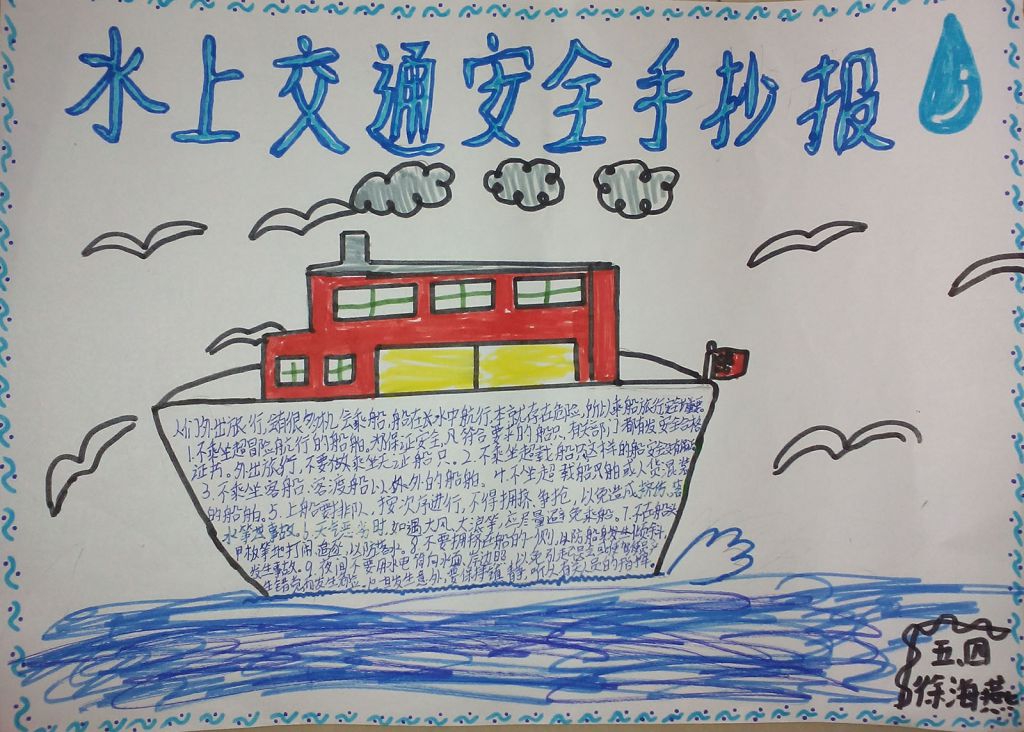 水上交通安全手抄报
人们外出旅行,有很多机会乘船,船在长水中航行本就存在危险,所以乘船旅行安全重要
1.不乘坐超冒险航行的船舶。为保证安全,凡符合要求的船只,有关部门都有发安全合格
证书。外出旅行,不要做乘坐无证船只。2.不乘坐超载船只这样的船安全
3.不乘坐客船、客渡船以外的船舶。4.不坐超载船只船或人货混装
的船舶。5.上船要排队,按次序进行,不得拥挤、争抢,以免造成挤伤、害
水等等事故。6.天气恶劣时,如遇大风、大浪等,应尽量避免乘船。7.不在船头
甲板等地打闹追逐,以防落水。8.不要拥挤在船的一侧,以防船身倾斜,
发生事故。9.夜间不要用水电筒向水面、岸边照,以免引起误会或使驾驶
生错觉而发生危险。10.一旦发生意外,要保持镇静,听从有关人员的指挥。
五、四
徐海燕